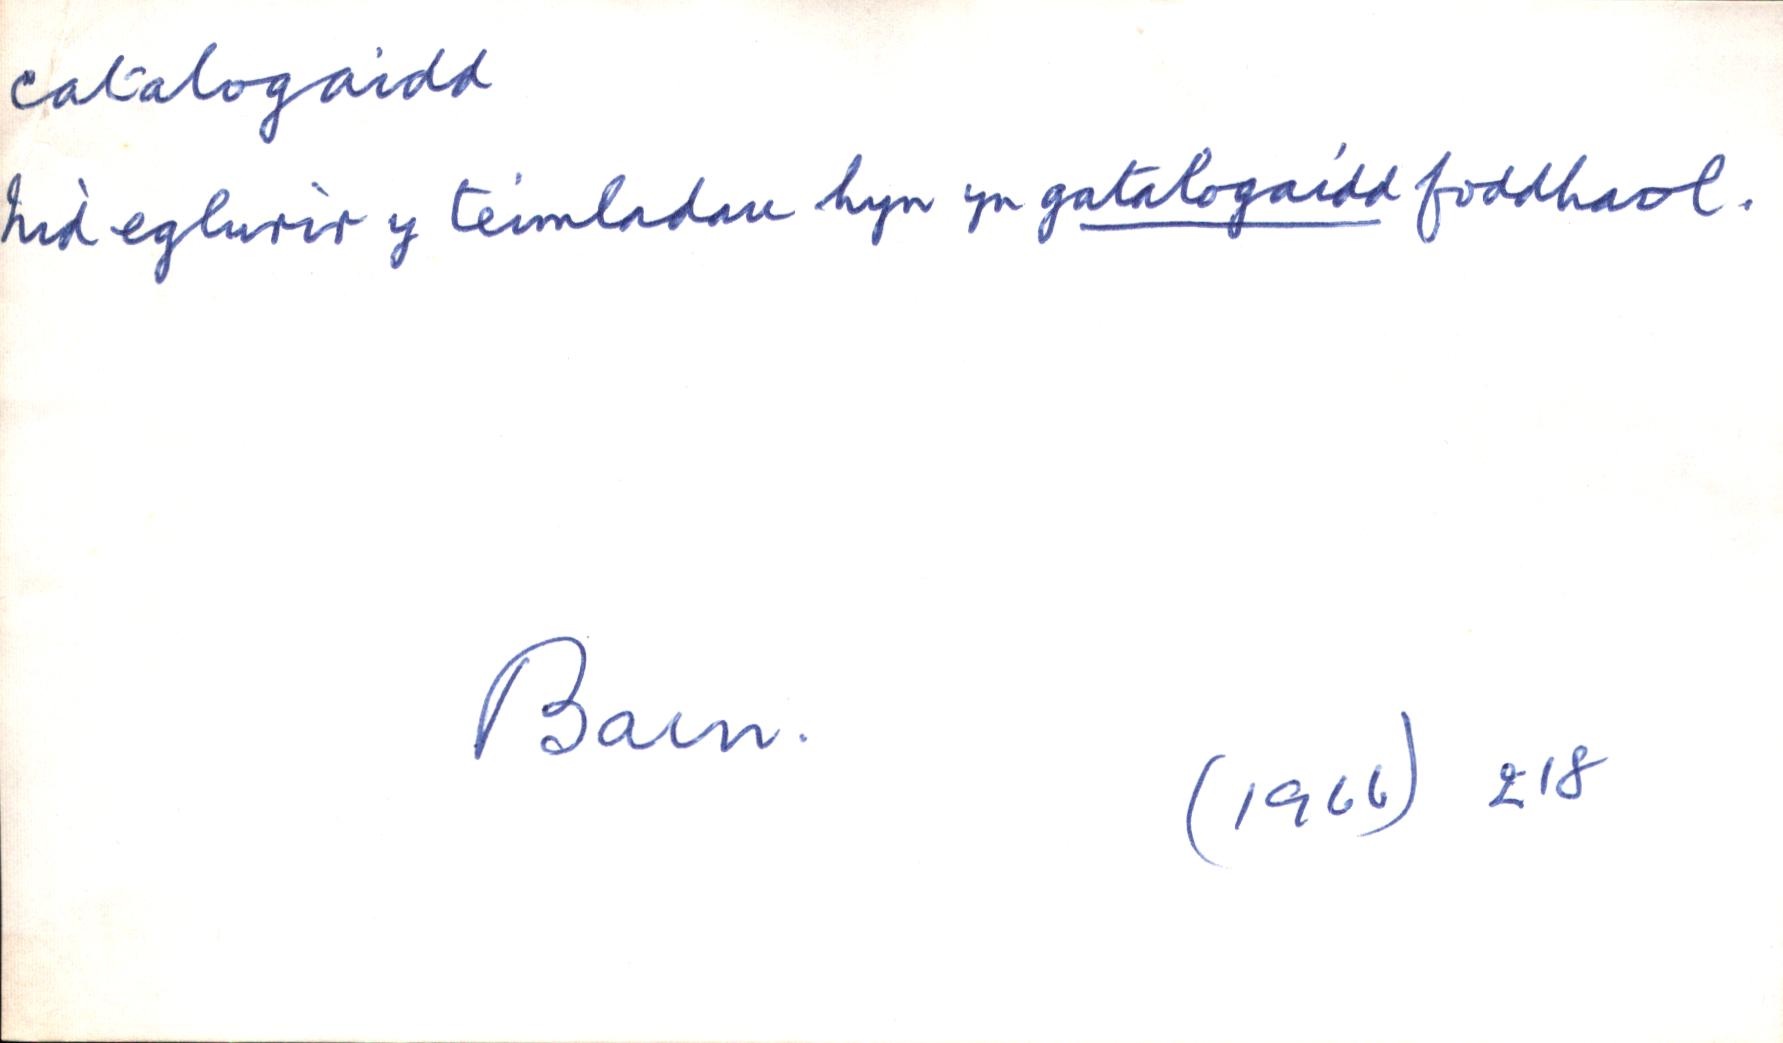 catalogaidd
Nid eglurir y teimladau hyn yn gatalogaidd foddhaol.
Barn.
(1966) 218